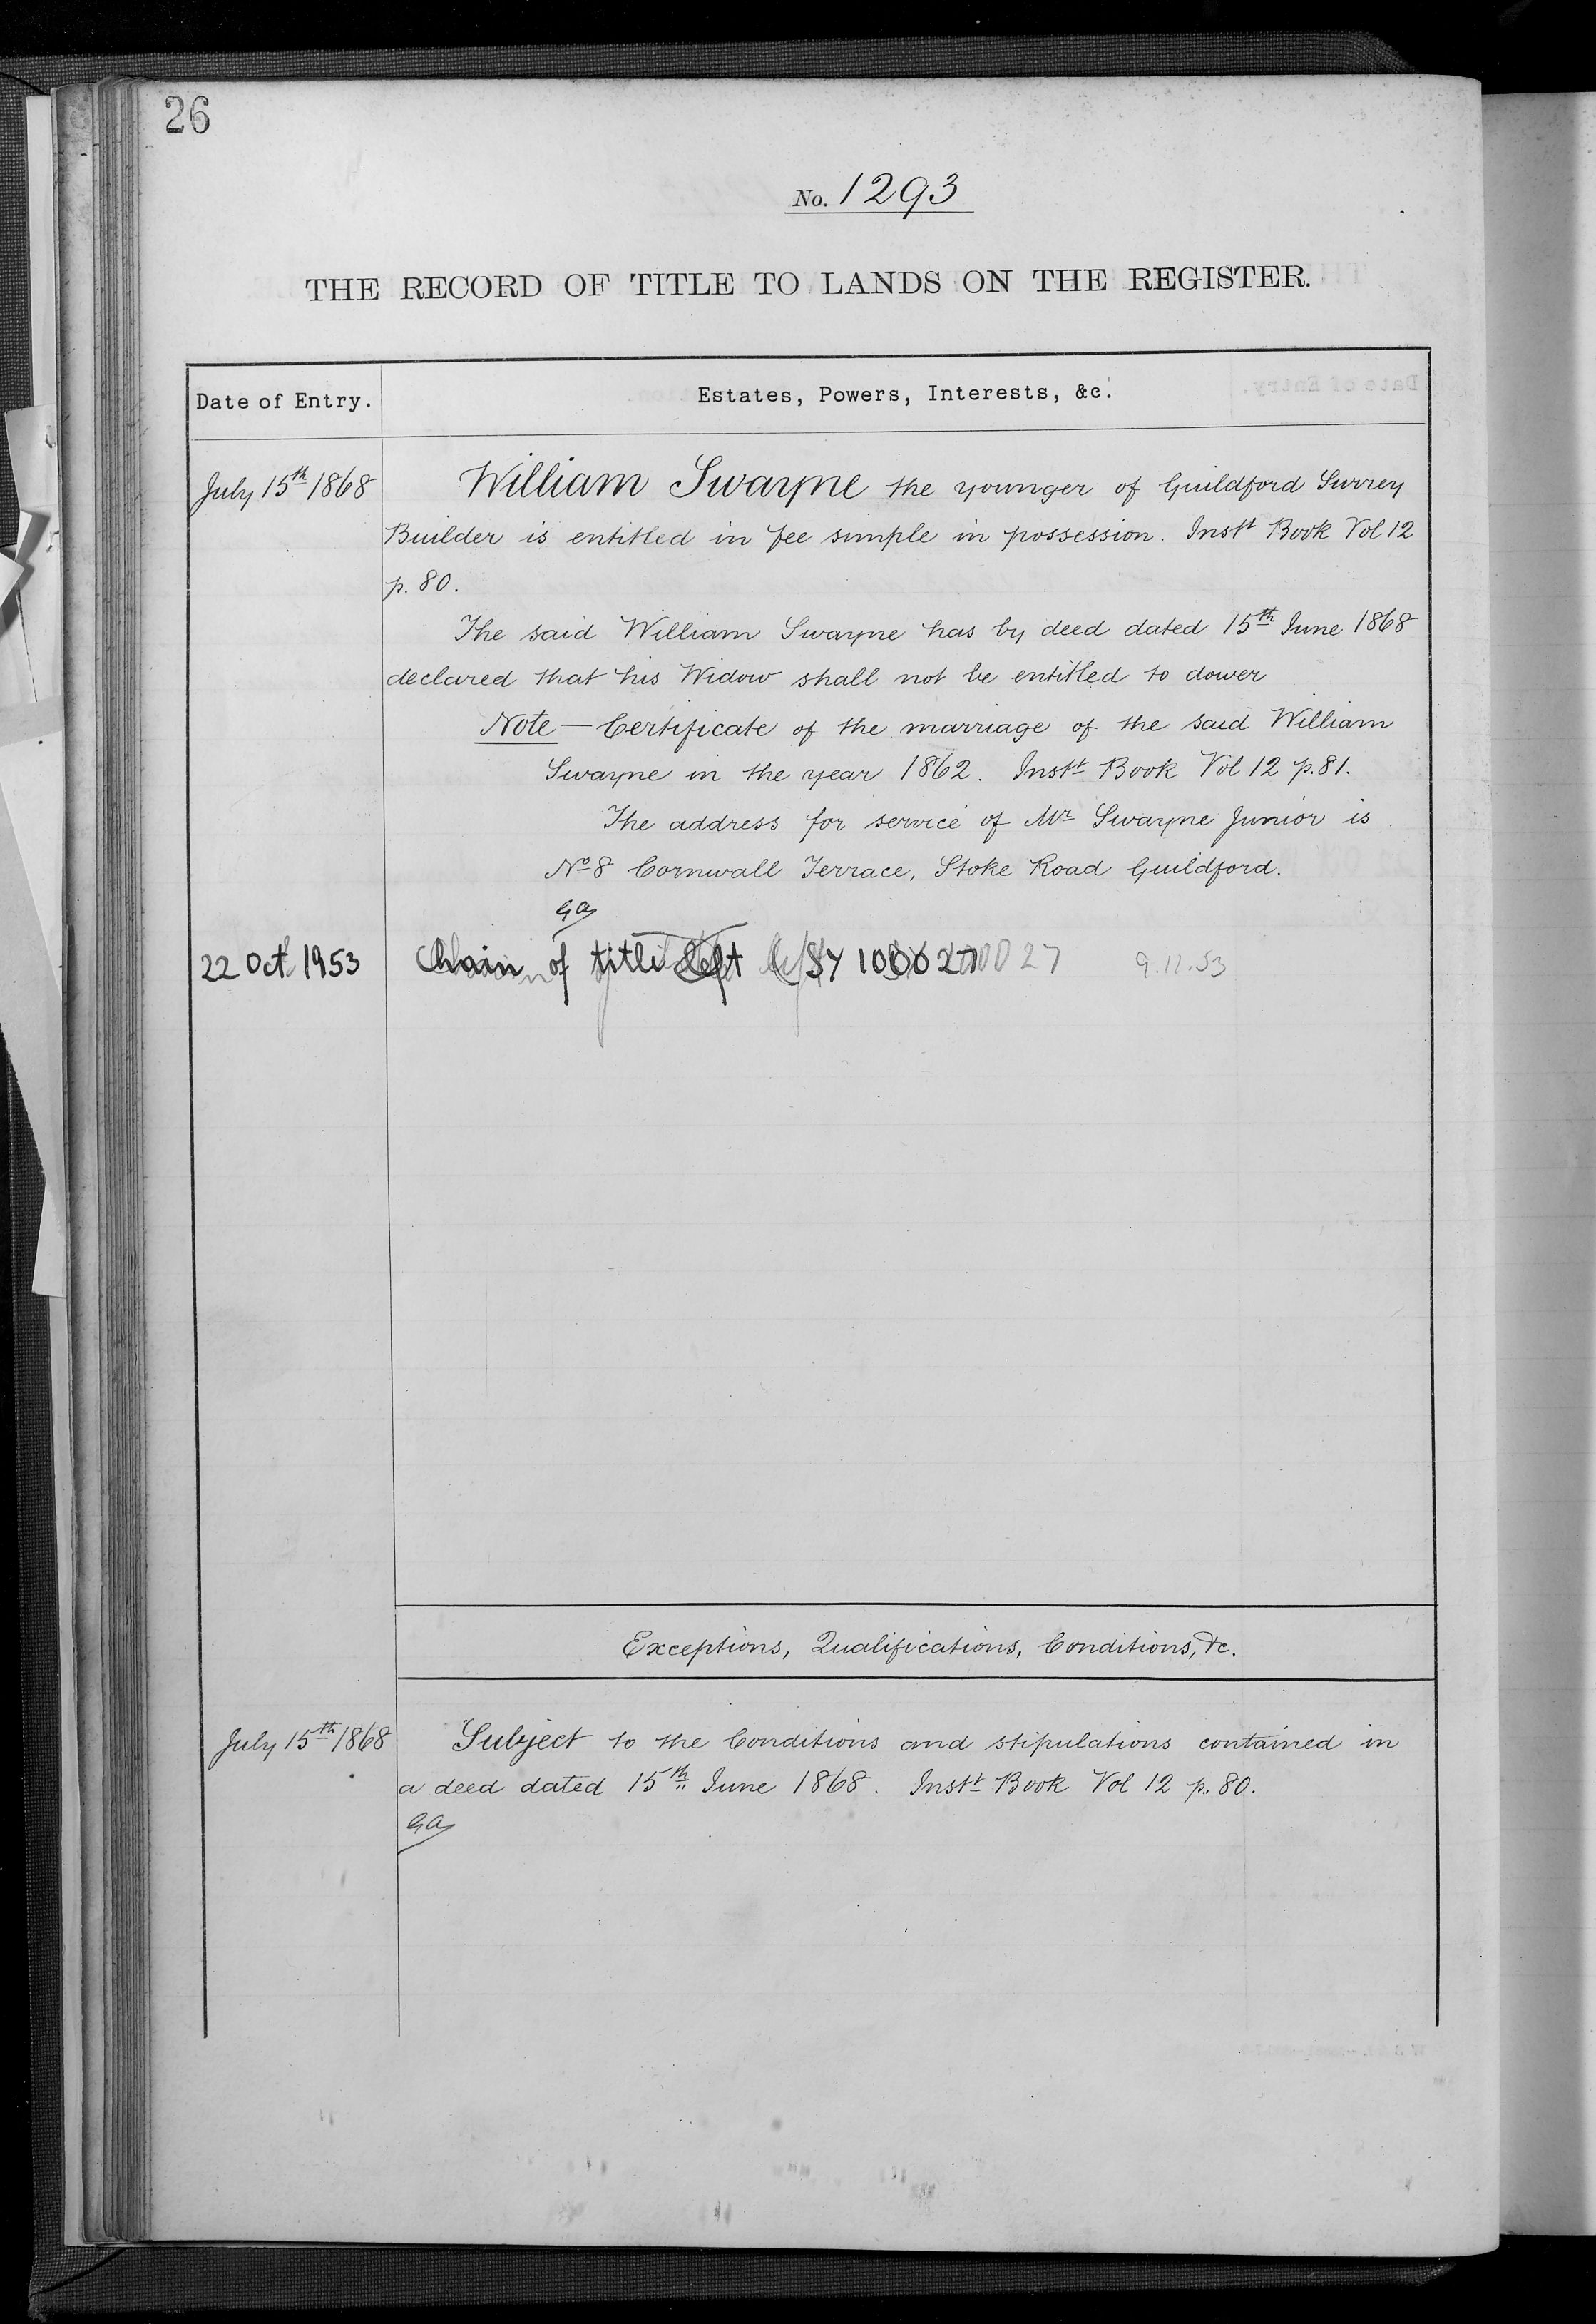 26
No. 1293
THE RECORD OF TITLE TO LANDS ON THE REGISTER.
Date of Entry.
Estates, Powers, Interests, &c.
July 15th 1868
William Swayne the younger of Guildford Surrey
Builder is entitled in fee simple in possession. Instt Book Vol 12
p. 80.
The said William Swayne has by deed dated 15th June 1868
declared that his Widow shall not be entitled to dower
Note — Certificate of the marriage of the said William
Swayne in the year 1862. Instt Book Vol 12 p. 81.
The address for service of Mr Swayne Junior is
No 8 Cornwall Terrace, Stoke Road Guildford.
GA
22 Oct 1953
Chain of title left SY 100027
9.11.53
Exceptions, Qualifications, Conditions, &c.
July 15th 1868
Subject to the Conditions and stipulations contained in
a deed dated 15th June 1868. Instt Book Vol 12 p. 80.
GA